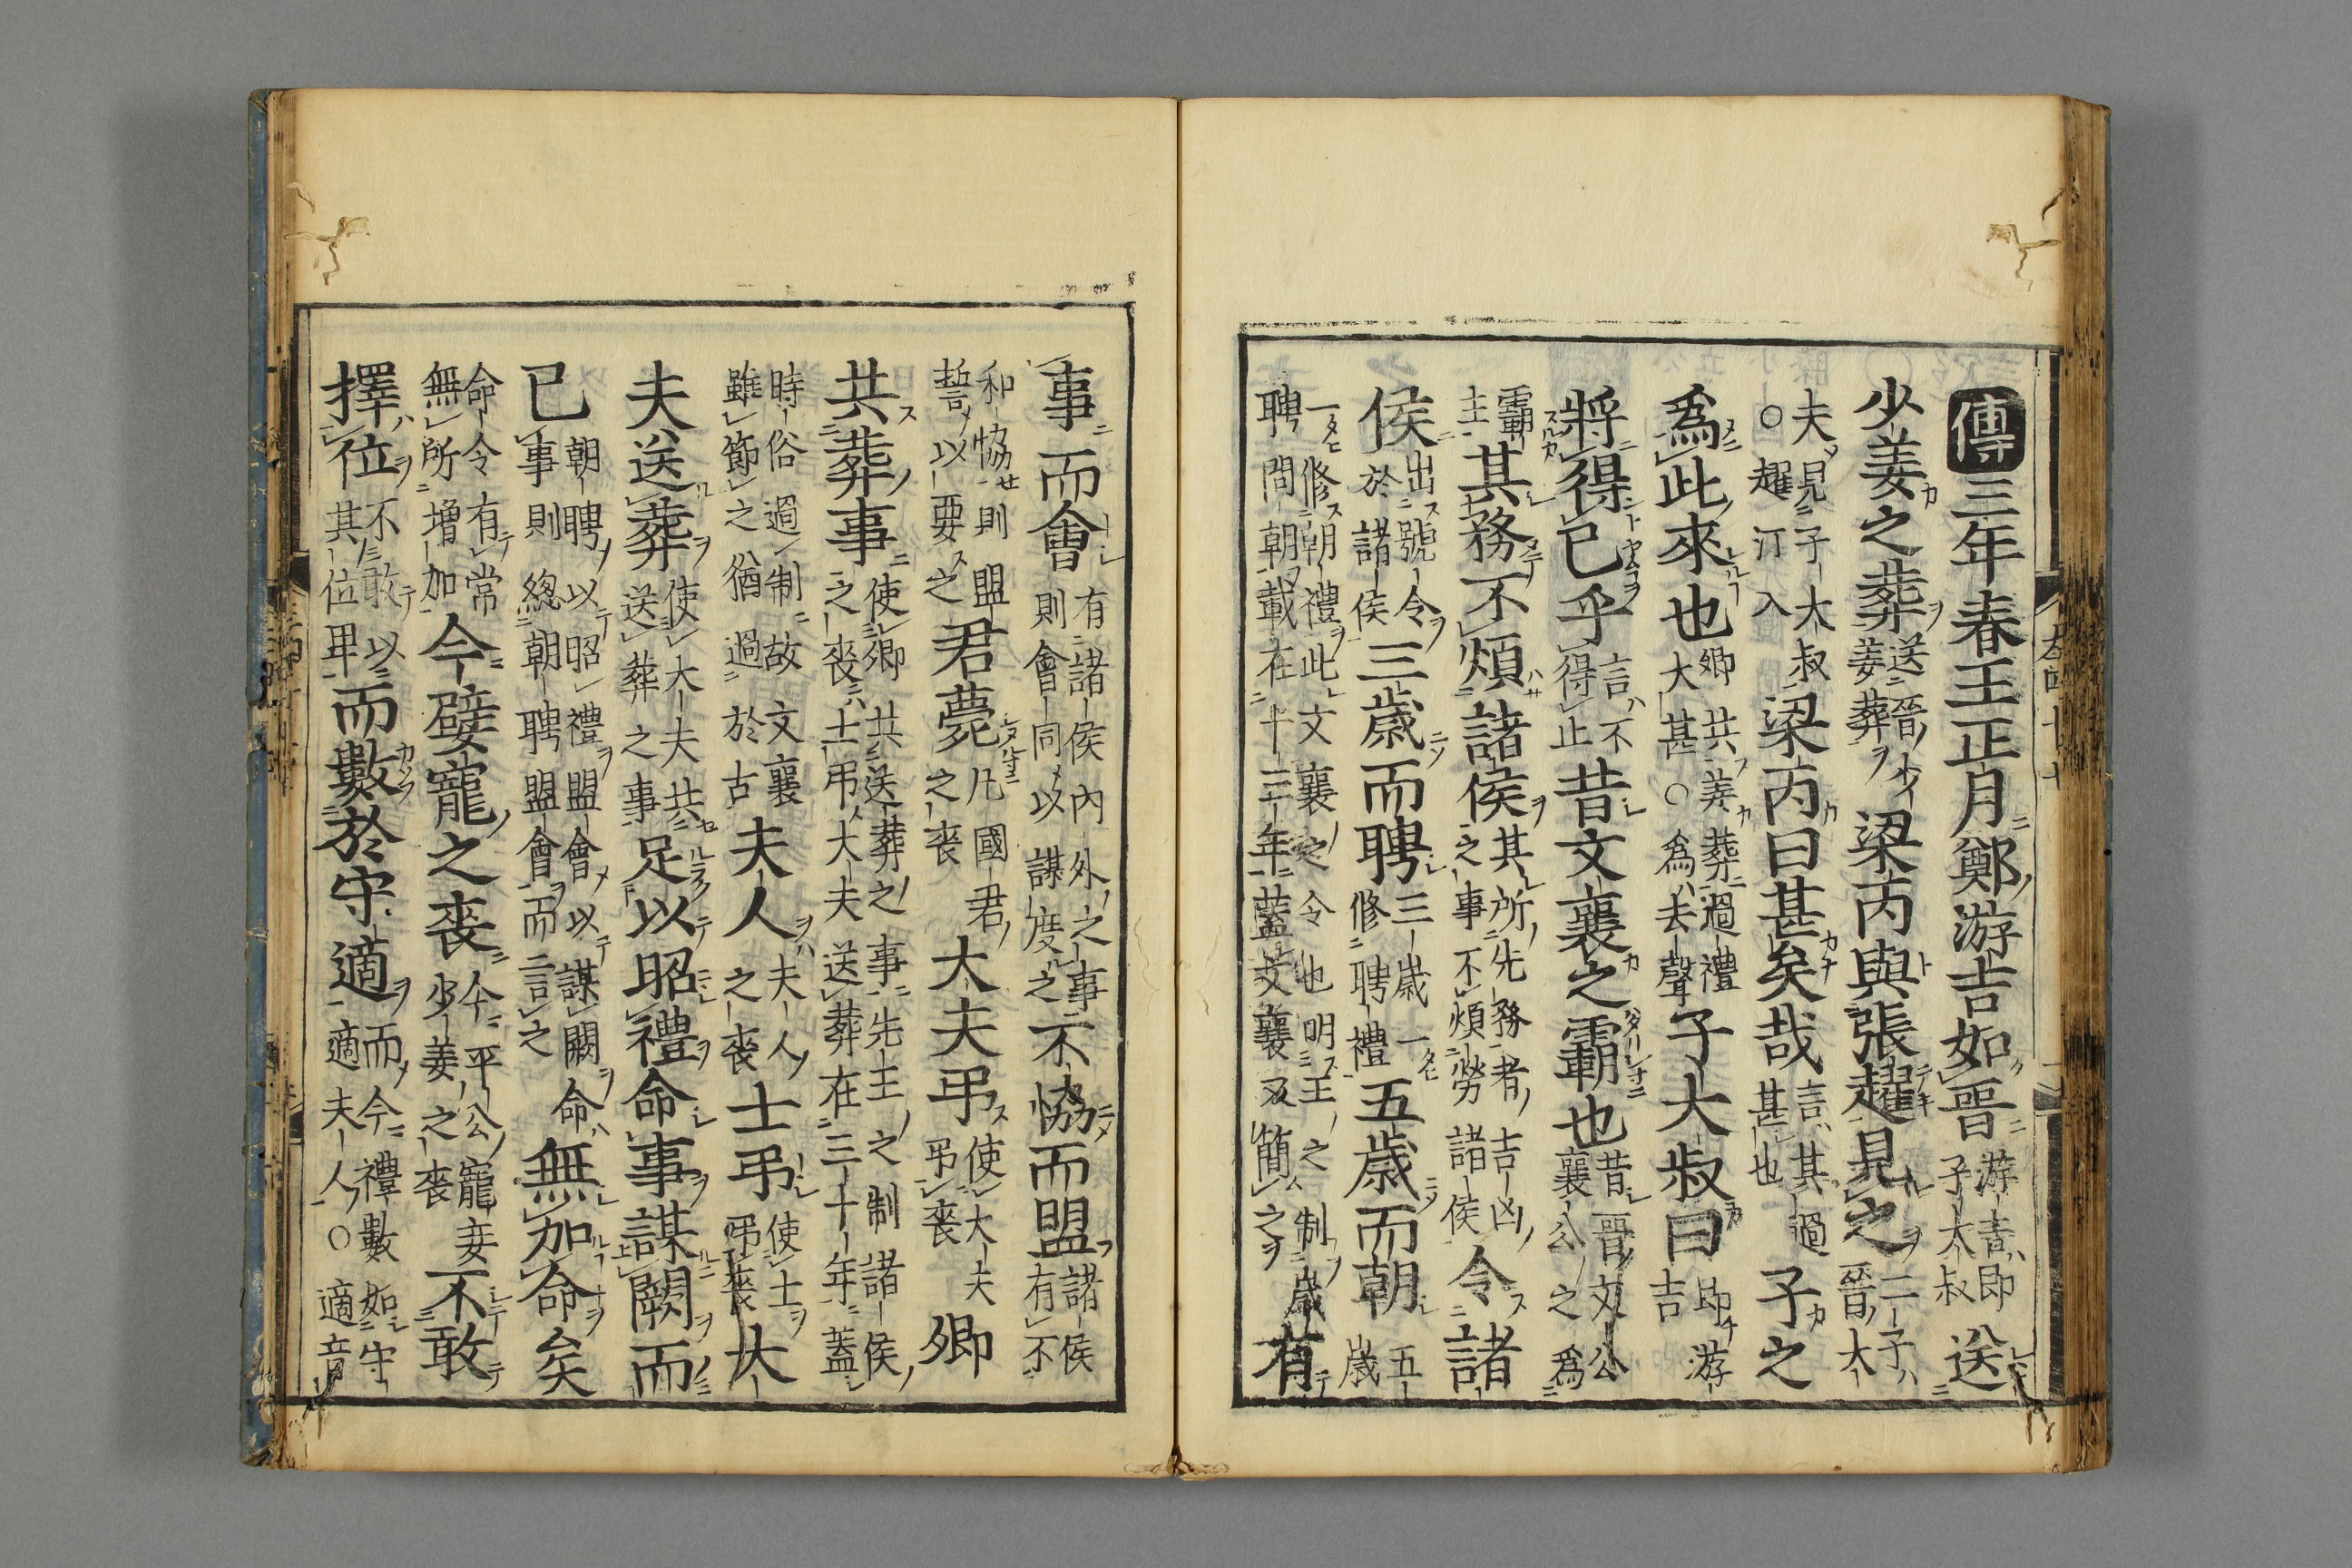 傳三年春王正月鄭游吉如晉游吉即子大叔送
少姜之葬送晉少姜葬梁丙與張趯見之二子晉大
夫見子大叔○趯汀入梁丙曰甚矣哉言其過甚也子之
爲此來也卿共姜葬過禮大甚○爲去聲子大叔曰即游吉
將得已乎言不得止昔文襄之霸也昔晉文公襄公之爲
霸主其務不煩諸侯其所先務者吉凶之事不煩勞諸侯令諸
侯出號令於諸侯三歲而聘三歲一修聘禮五歲而朝五歲
一修朝禮此文襄之令也明王之制歲聘問朝載在十三年蓋文襄又簡之有
事而會有諸侯內外之事則會同以謀度之不協而盟諸侯有不
和協則盟誓以要之君薨凡國君之喪大夫弔使大夫弔喪卿
共葬事使卿共送葬之事先王之制諸侯之喪士弔大夫送葬在三十年蓋
時俗過制故文襄雖節之猶過於古夫人夫人之喪士弔使士弔喪大
夫送葬使大夫共送葬之事足以昭禮命事謀闕而
已朝聘以昭禮盟會以謀闕命事則總朝聘盟會而言之無加命矣
命令有常無所增加今嬖寵之喪今平公寵妾少姜之喪不敢
擇位不敢以其位卑而數於守適而今禮數如守適夫人○適音